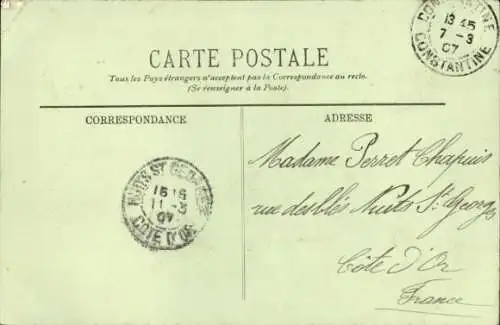 CONSTANTINE
13 45
7 - 3
07
CONSTANTINE
CARTE POSTALE
Tous les Pays étrangers n'acceptent pas la Correspondance au recto.
(Se renseigner à la Poste).
CORRESPONDANCE
ADRESSE
Madame Perret Chapuis
rue des Blés Nuits St Georges
Côte d'Or
France
NUITS ST GEORGES
11 - 3
07
COTE D'OR